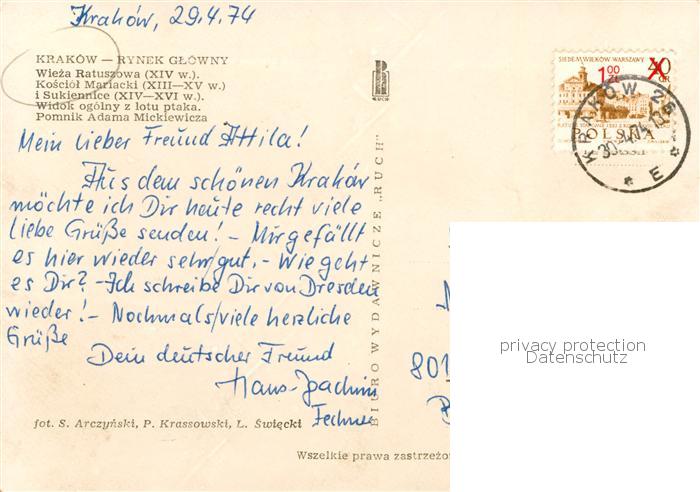 Kraków, 29.4.74
KRAKÓW — RYNEK GŁÓWNY
Wieża Ratuszowa (XIV w.).
Kościół Mariacki (XIII—XV w.)
i Sukiennice (XIV—XVI w.).
Widok ogólny z lotu ptaka.
Pomnik Adama Mickiewicza
RUCH
SIEDEM WIEKÓW WARSZAWY
1,00 ZŁ
40 GR
POLSKA
KRAKÓW 26
30.4.74
E
Mein lieber Freund Attila!
Aus dem schönen Kraków
möchte ich Dir heute recht viele
liebe Grüße senden! - Mir gefällt
es hier wieder sehr gut. - Wie geht
es Dir? - Ich schreibe Dir von Dresden
wieder! - Nochmals viele herzliche
Grüße
Dein deutscher Freund
Hans-Joachim
BIURO WYDAWNICZE „RUCH"
801
privacy protection
Datenschutz
fot. S. Arczyński, P. Krassowski, L. Święcki
Wszelkie prawa